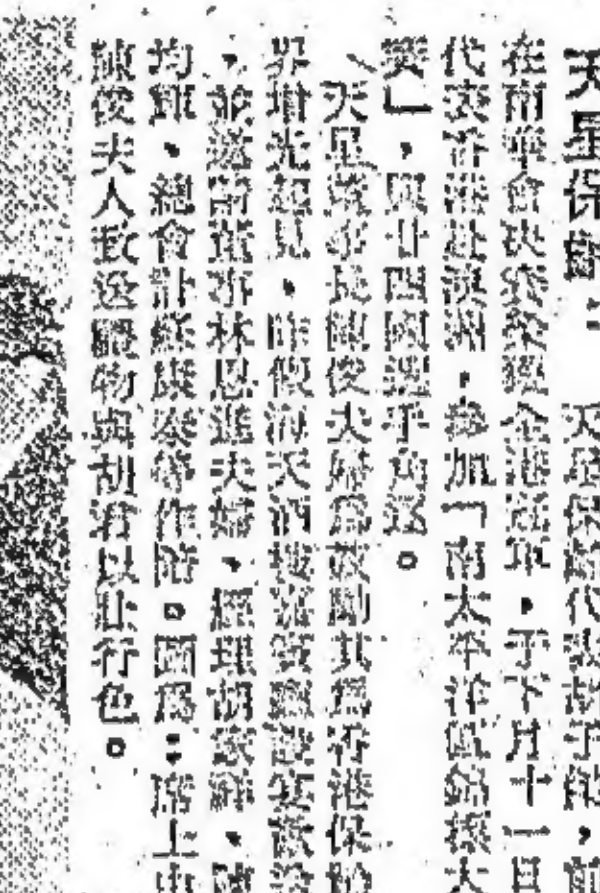 天星保齡：天星保齡代表胡子能，前
在南華會決賽榮獲全港冠軍，于下月十一日
代表香港赴澳州，參加「南太平洋區錦標大
賽」，與廿四國選手角逐。
天星隊長陳俊夫婦為鼓勵其為香港保齡
界增光起見，昨假海天酒樓設宴
，並邀請董事林恩進夫婦，經理胡家祥，陳
均輝，總會計蘇康泰等作陪。圖為：席上由
陳俊夫人致送禮物與胡君以壯行色。